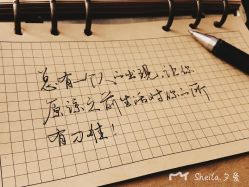 总有一个人的出现，让你
原谅之前生活对你的所
有刁难！
Sheila.夕兔